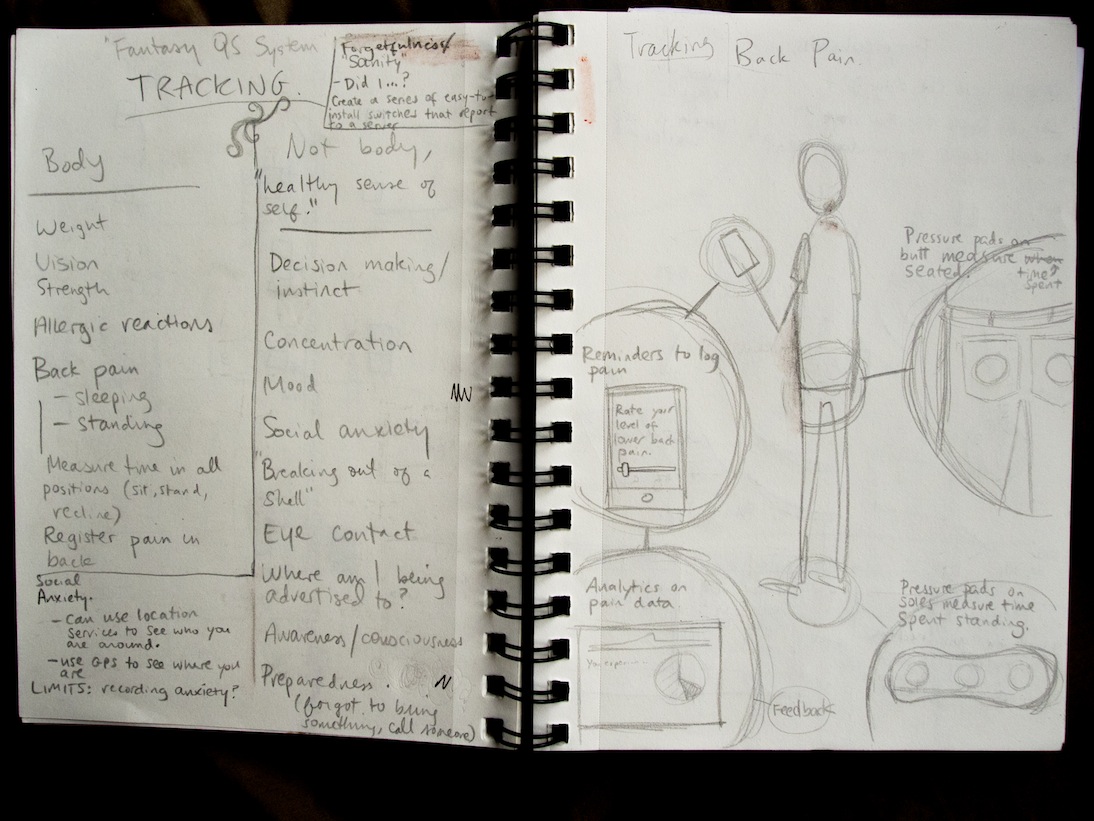 "Fantasy QS System"
TRACKING.
Forgetfulness/
"Sanity"
- Did I ...?
Create a series of easy-to-
install switches that report
to a server
Body
Weight
Vision
Strength
Allergic reactions
Back pain
- sleeping
- standing
Measure time in all
positions (sit, stand,
recline)
Register pain in
back
Social
Anxiety.
- Can use location
services to see who you
are around.
- use GPS to see where you
are
LIMITS: recording anxiety?
Not body,
"healthy sense of
self."
Decision making/
instinct
Concentration
Mood
Social anxiety
"Breaking out of a
shell"
Eye contact
Where am I being
advertised to?
Awareness/consciousness
Preparedness.
(forgot to bring
something, call someone)
Tracking Back Pain.
Pressure pads on
butt measure when
seated. time
spent
Reminders to log
pain
Rate your
level of
lower back
pain.
Analytics on
pain data
Feedback
Pressure pads on
soles measure time
spent standing.